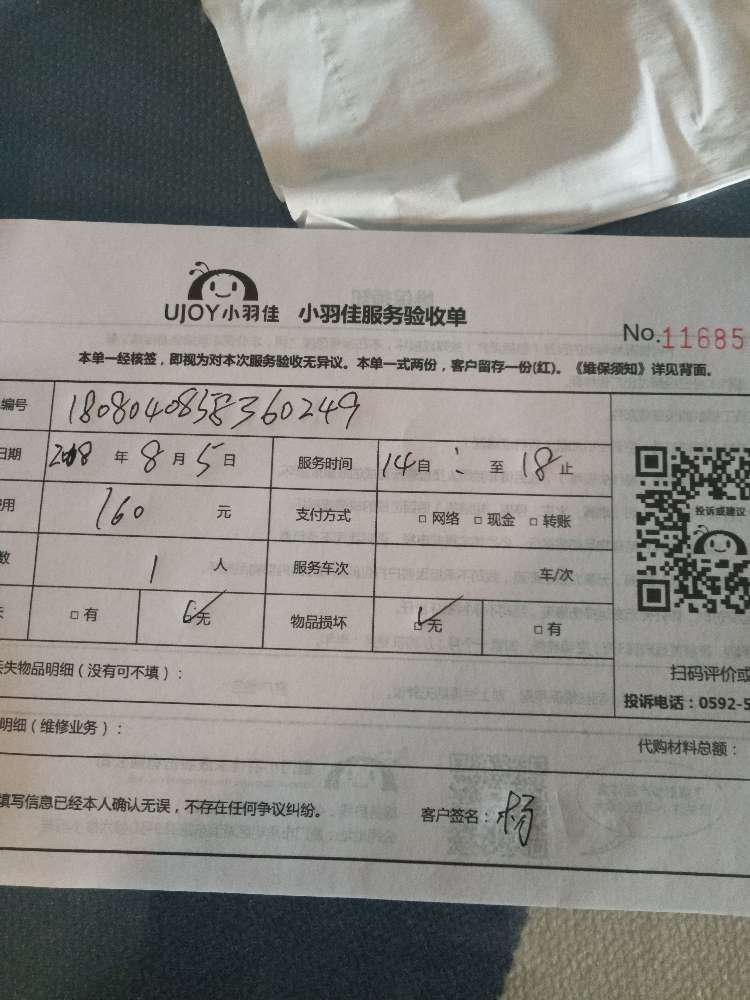 UJOY小羽佳 小羽佳服务验收单
No.11685
本单一经核签，即视为对本次服务验收无异议。本单一式两份，客户留存一份(红)。《维保须知》详见背面。
编号 1808040858360249
日期 2018 年 8 月 5 日 服务时间 14自 : 至 18止
用 160 元 支付方式 □ 网络 □ 现金 □ 转账
数 1 人 服务车次 车/次
投诉或建议
失 □ 有 □ 无 物品损坏 □ 无 □ 有
丢失物品明细（没有可不填）：
扫码评价或
投诉电话：0592-5
明细（维修业务）：
代购材料总额：
填写信息已经本人确认无误，不存在任何争议纠纷。 客户签名：杨